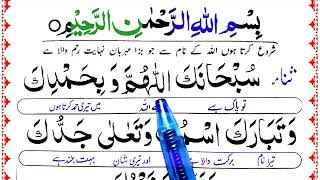 بِسْمِ اللهِ الرَّحْمٰنِ الرَّحِيْمِ
شروع کرتا ہوں اللہ کے نام سے جو بڑا مہربان نہایت رحم والا ہے
ثناء سُبْحَانَكَ اللّٰهُمَّ وَ بِحَمْدِكَ
تو پاک ہے اللہ میں تیری حمد کرتا ہوں
وَتَبَارَكَ اسْمُكَ وَتَعَالٰى جَدُّكَ
تیرا نام برکت والا ہے اور تیری شان بہت بلند ہے